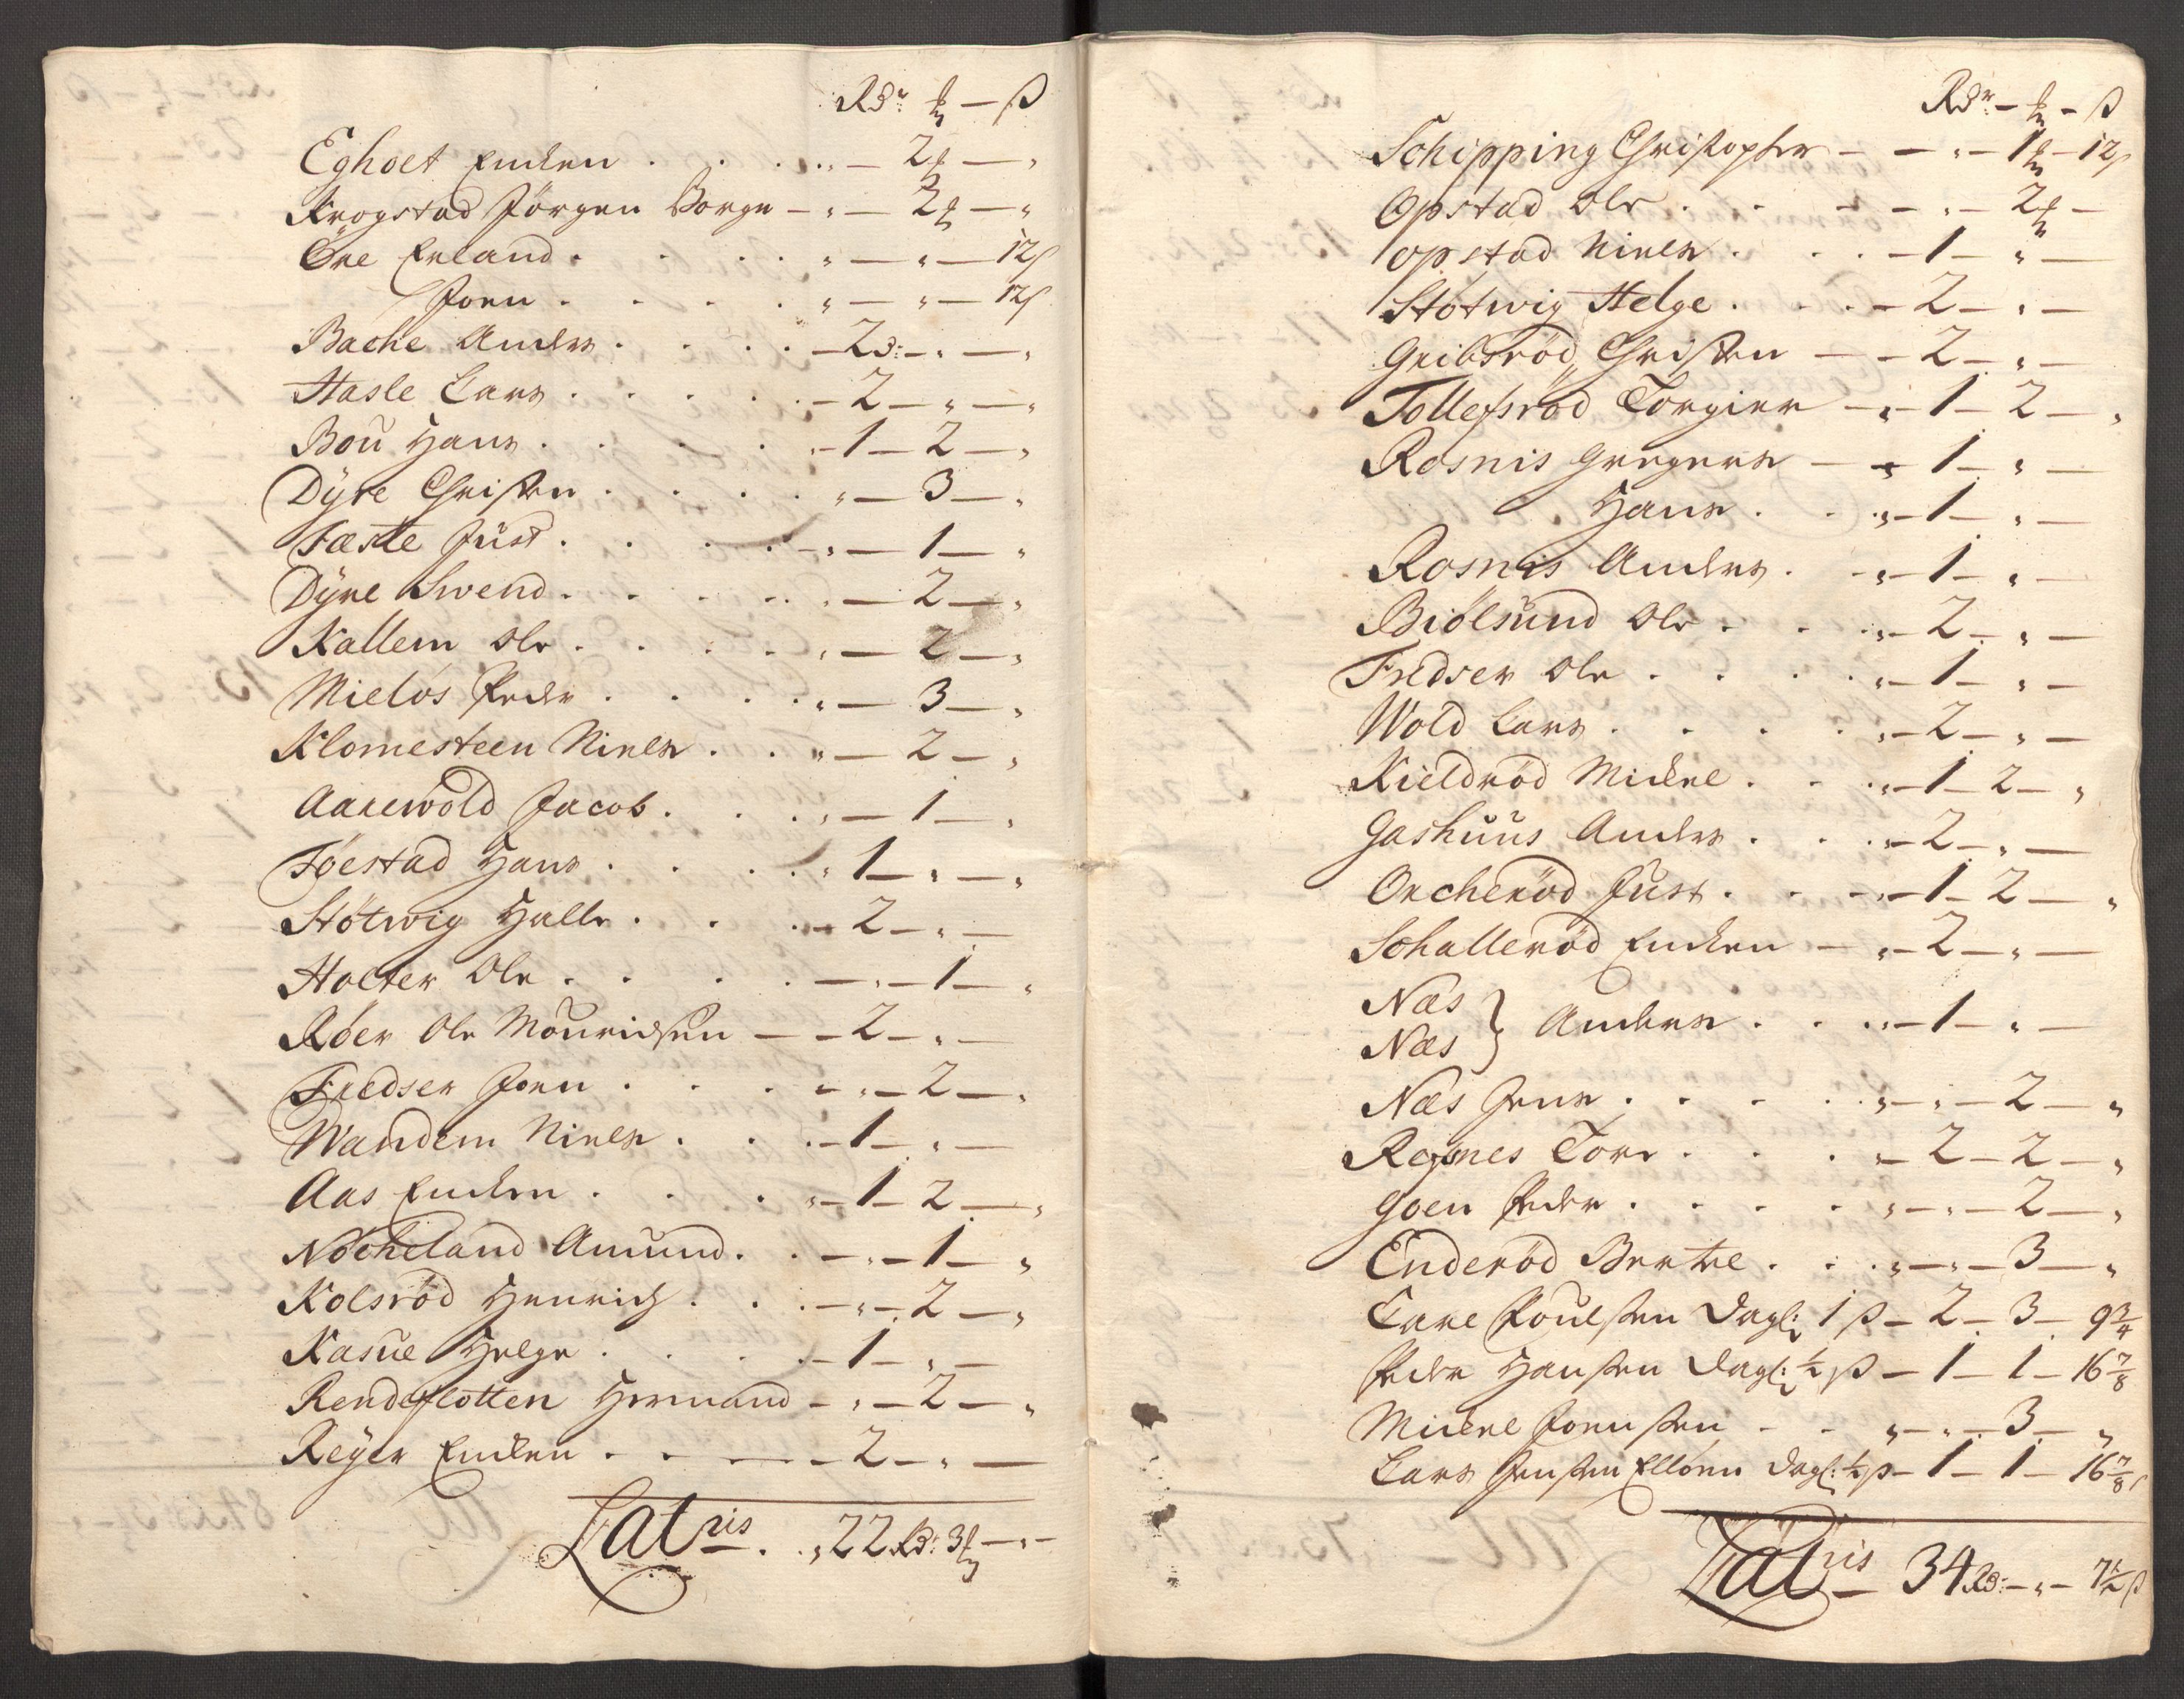 Rdr: ℔ — ß
Egholt Enchen . . . „ — 2 ℔ — „
Krogstad Jörgen Borge — „ — 2 ℔ — „
Öre Erland . . . „ — „ — 12 ß
Joen . . . . „ — „ — 12 ß
Bache Anders . . . . — 2 d: — „ — „
Hasle Lars . . . . . — 2 — „ — „
Boŭ Hans . . . . — 1 — 2 — „
Dÿre Christen . . . . „ — 3 — „
Tæste Jŭst . . . . — „ — 1 — „
Dÿre Swend . . . . . „ — 2 — „
Kallem Ole . . . . „ — 2 — „
Mielös Peder . . . . „ — 3 — „
Klomesteen Niels . . „ — 2 — „
Aarewold Jacob . . . „ — 1 — „
Töestad Hans . . . . „ 1 — „ — „
Stötwig Halle . . . — 2 — „ —
Holter Ole . . . . — „ — 1 — „
Röer Ole Moŭridsen — — 2 — „ —
Fredser Joen . . . — „ — 2 — „
Wandem Niels . . . — 1 — „ —
Aas Enchen . . . „ — 1 — 2 — „
Nöcheland Amŭnd . . — „ — 1 — „
Kolsröd Henrich . . . — „ — 2 — „
Kasŭe Helge . . . . — 1 — „ —
Rendeflotten Hermand — „ — 2 — „
Reÿer Enchen . . . — 2 — „ —
Latris . . „ 22 Rd: 3 ℔ — „ —
Rdr: — ℔ — ß
Schipping Christopher — — „ — 1 ℔ — 12 ß
Opstad Ole . . — — „ — 2 ℔ —
opstad Niels . . . — 1 — „ —
Stötwig Helge . . . — 2 — „ —
Gribsröd Christen — — 2 — „ —
Tollefsröd Torgier — „ — 1 — 2 — „
Rosnis Gregers — „ — 1 — „ —
Hans . . „ — 1 — „ —
Rosnis Anders . — „ — 1 — „ —
Biölsŭnd Ole . . . „ — 2 — „ —
Fredser Ole . . . . „ — 1 — „ —
Wold Lars . . . . „ — 2 — „ —
Kieldröd Michel . . . „ — 1 — 2 — „
Gashŭŭs Anders . . . „ — 2 — „ —
Orcheröd Jŭst . . — „ — 1 — 2 — „
Schalleröd Enchen — „ — 2 — „ —
Næs
Næs } Anders . . . „ — 1 — „ —
Næs Jens . . . . „ — „ — 2 — „
Refsnes Tore . . . „ — 2 — 2 — „
Goen Peder . . . . „ — „ — 2 — „
Enderöd Bertel . . . „ — „ — 3 — „
Tare Poŭlsen dagl: 1 ß — 2 — 3 — 9 3/4
Peder Hansen dagl: 1/2 ß — 1 — 1 — 16 7/8
Michel Joensen . . „ — „ — 3 — „
Lars Jensen Ellöen dagl: 1/2 ß — 1 — 1 — 16 7/8
Latris — 34 Rd: — „ — 7 1/2 ß